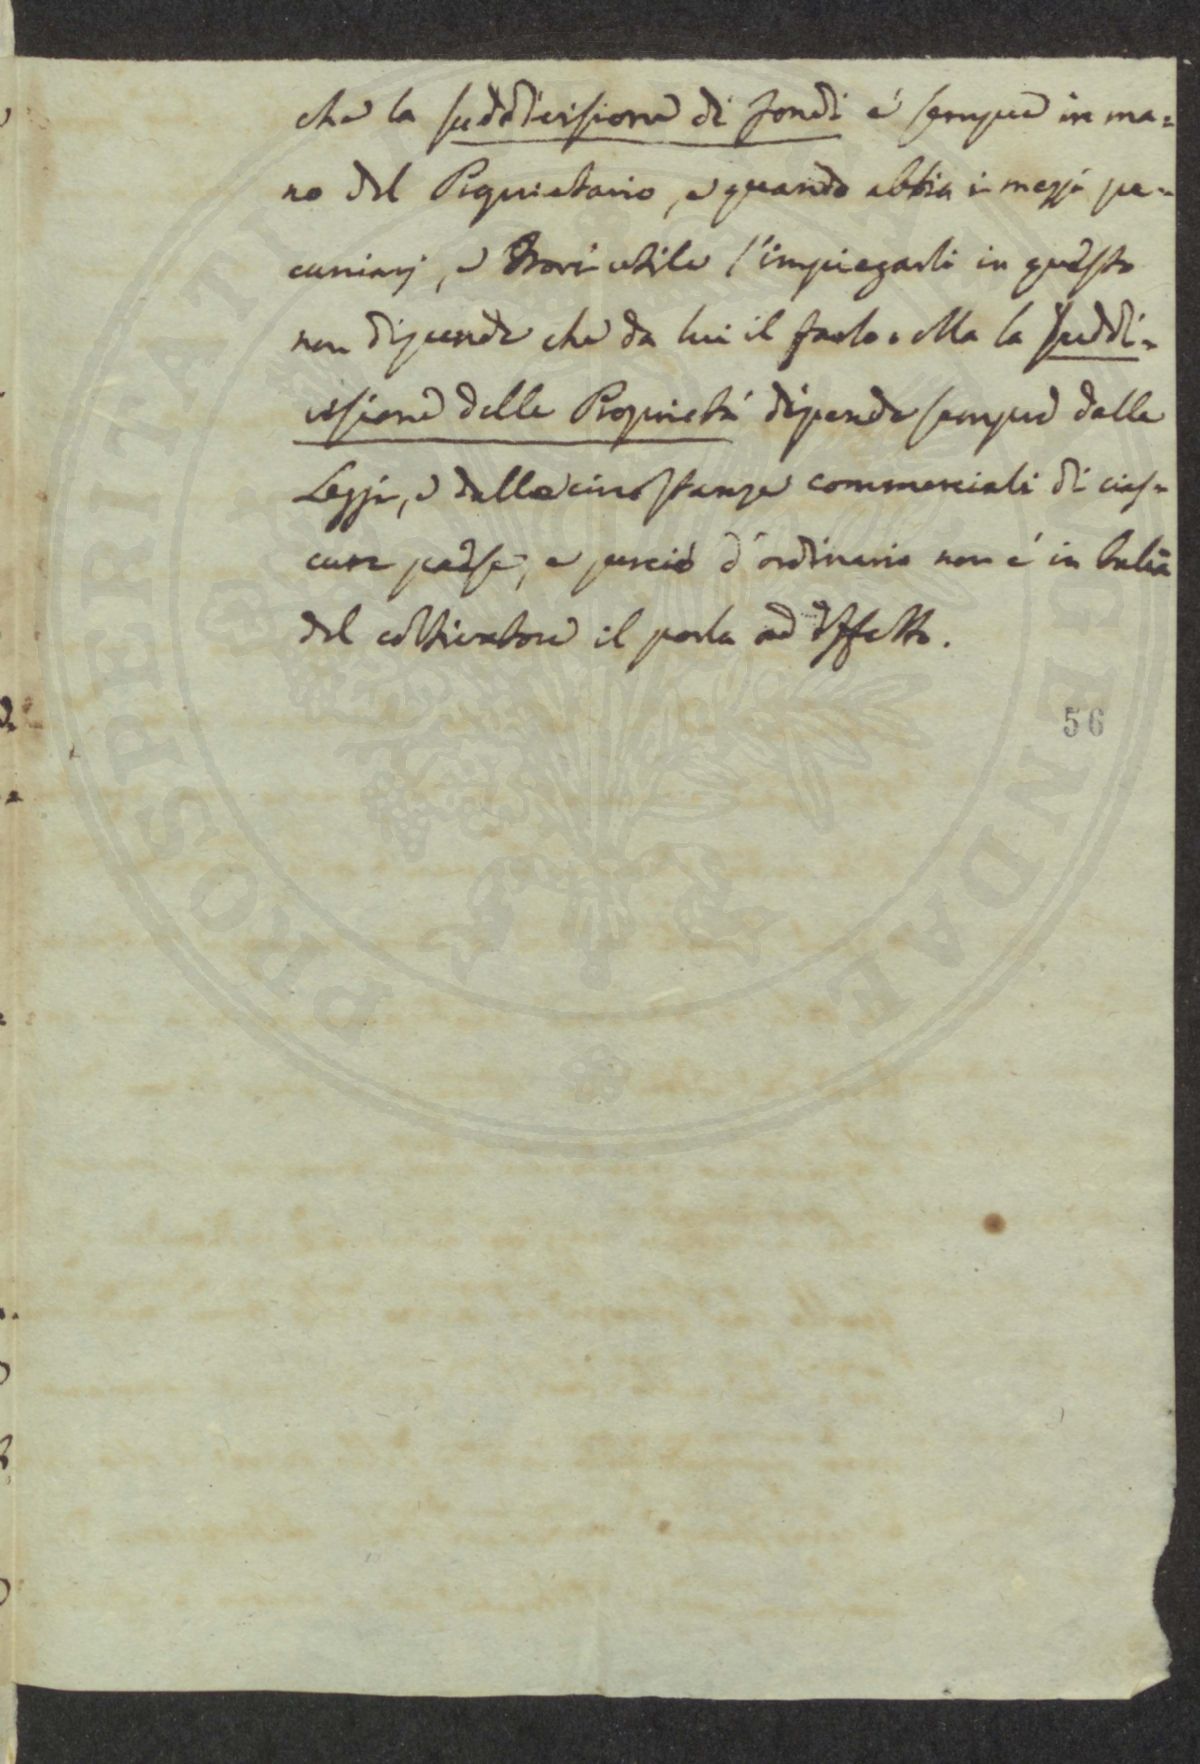 che la suddivisione di fondi é sempre in ma=
no del Proprietario, e quando abbia i mezzi pe=
cuniarj, e trovi utile l'impiegarli in questo
non dipende che da lui il farlo. Ma la suddi=
visione delle Proprietá dipende sempre dalle
Leggi, e dalle circostanze commerciali di cias=
cun paese, e perció d'ordinario non é in balía
del coltivatore il porla ad effetto.
56
PROSPERITATI PUBLICAE AUGENDAE